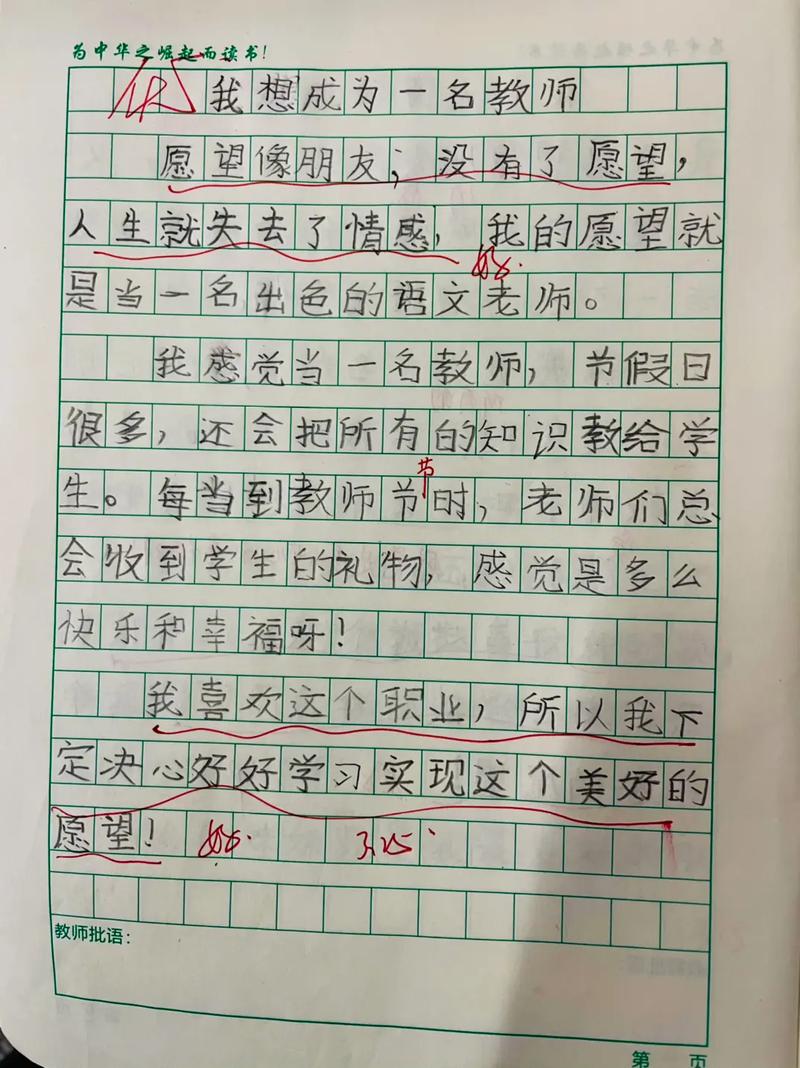 为中华之崛起而读书！
优 我想成为一名教师
愿望像朋友；没有了愿望，
人生就失去了情感，我的愿望就
好.
是当一名出色的语文老师。
我感觉当一名教师，节假日
很多，还会把所有的知识教给学
节
生。每当到教师节时，老师们总
会收到学生的礼物，感觉是多么
快乐和幸福呀！
我喜欢这个职业，所以我下
定决心好好学习实现这个美好的
愿望！ 好. 3.25.
教师批语：
第 页